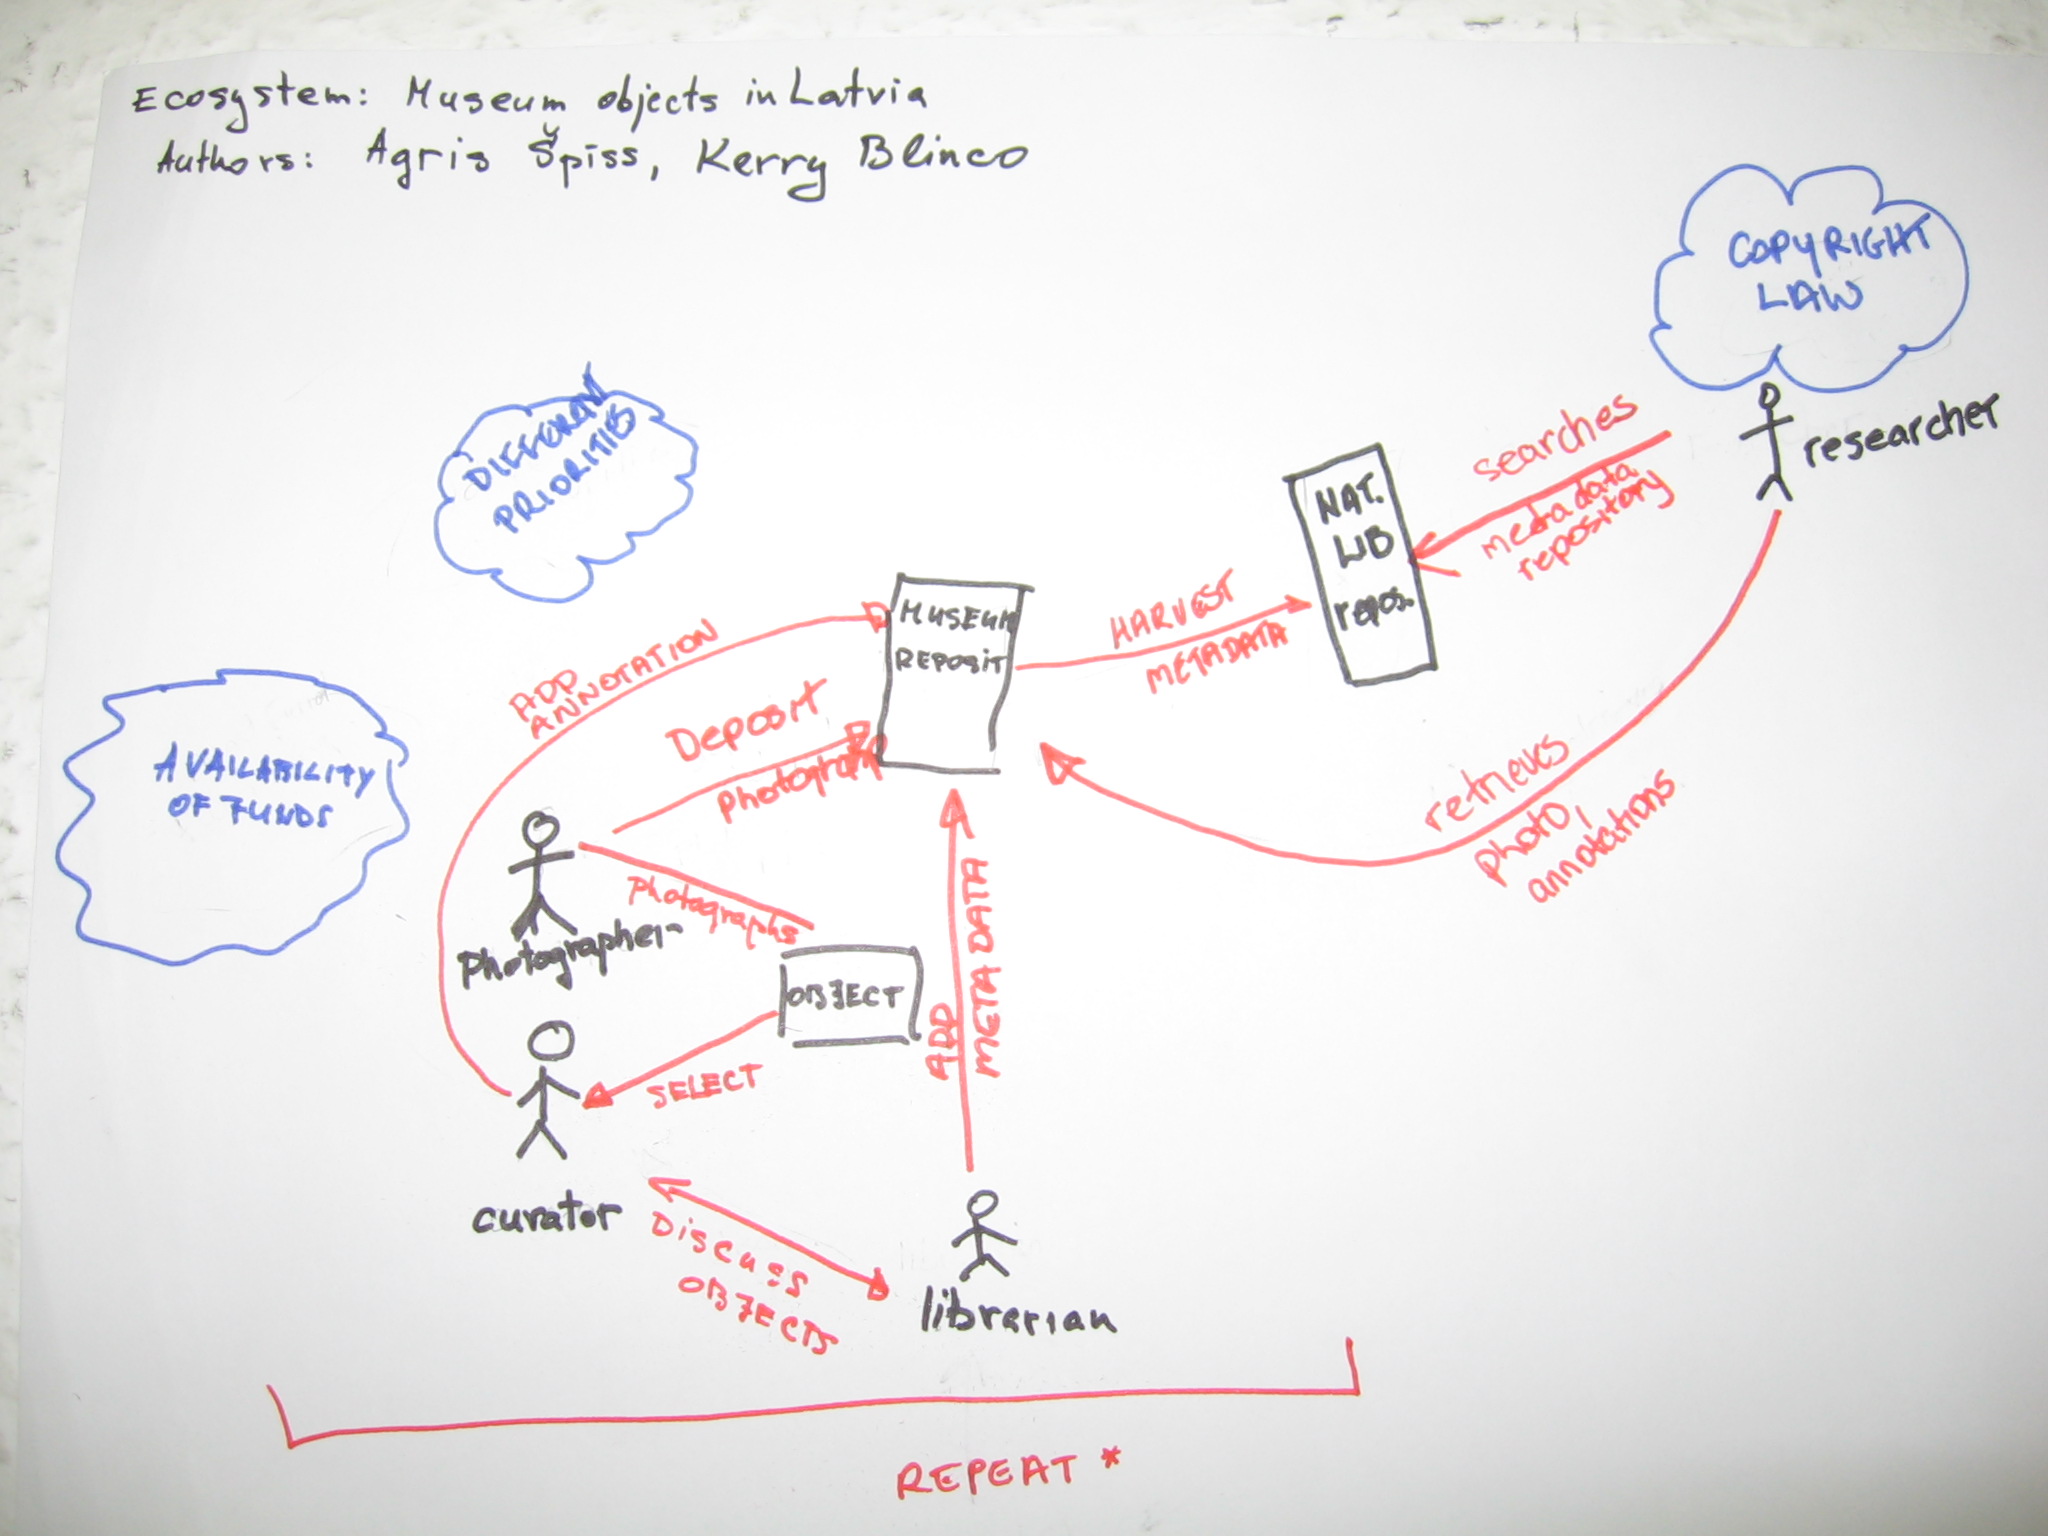 Ecosystem: Museum objects in Latvia
Authors: Agris Špiss, Kerry Blinco
COPYRIGHT
LAW
researcher
searches
metadata
repository
NAT.
LIB
repos.
DIFFERENT
PRIORITIES
MUSEUM
REPOSIT
HARVEST
METADATA
ADD
ANNOTATION
Deposit
photograph
AVAILABILITY
OF FUNDS
retrievs
photo,
annotations
Photographer
photographs
OBJECT
SELECT
ADD
METADATA
curator
Discuss
OBJECTS
librarian
REPEAT *